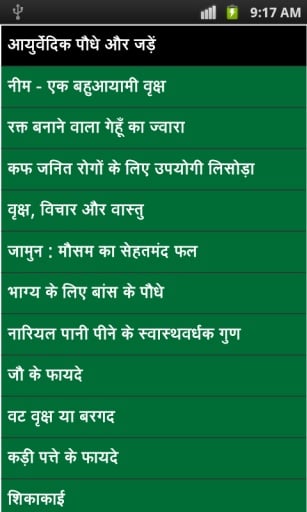 9:17 AM
आयुर्वेदिक पौधे और जड़ें
नीम - एक बहुआयामी वृक्ष
रक्त बनाने वाला गेहूँ का ज्वारा
कफ जनित रोगों के लिए उपयोगी लिसोड़ा
वृक्ष, विचार और वास्तु
जामुन : मौसम का सेहतमंद फल
भाग्य के लिए बांस के पौधे
नारियल पानी पीने के स्वास्थवर्धक गुण
जौ के फायदे
वट वृक्ष या बरगद
कड़ी पत्ते के फायदे
शिकाकाई